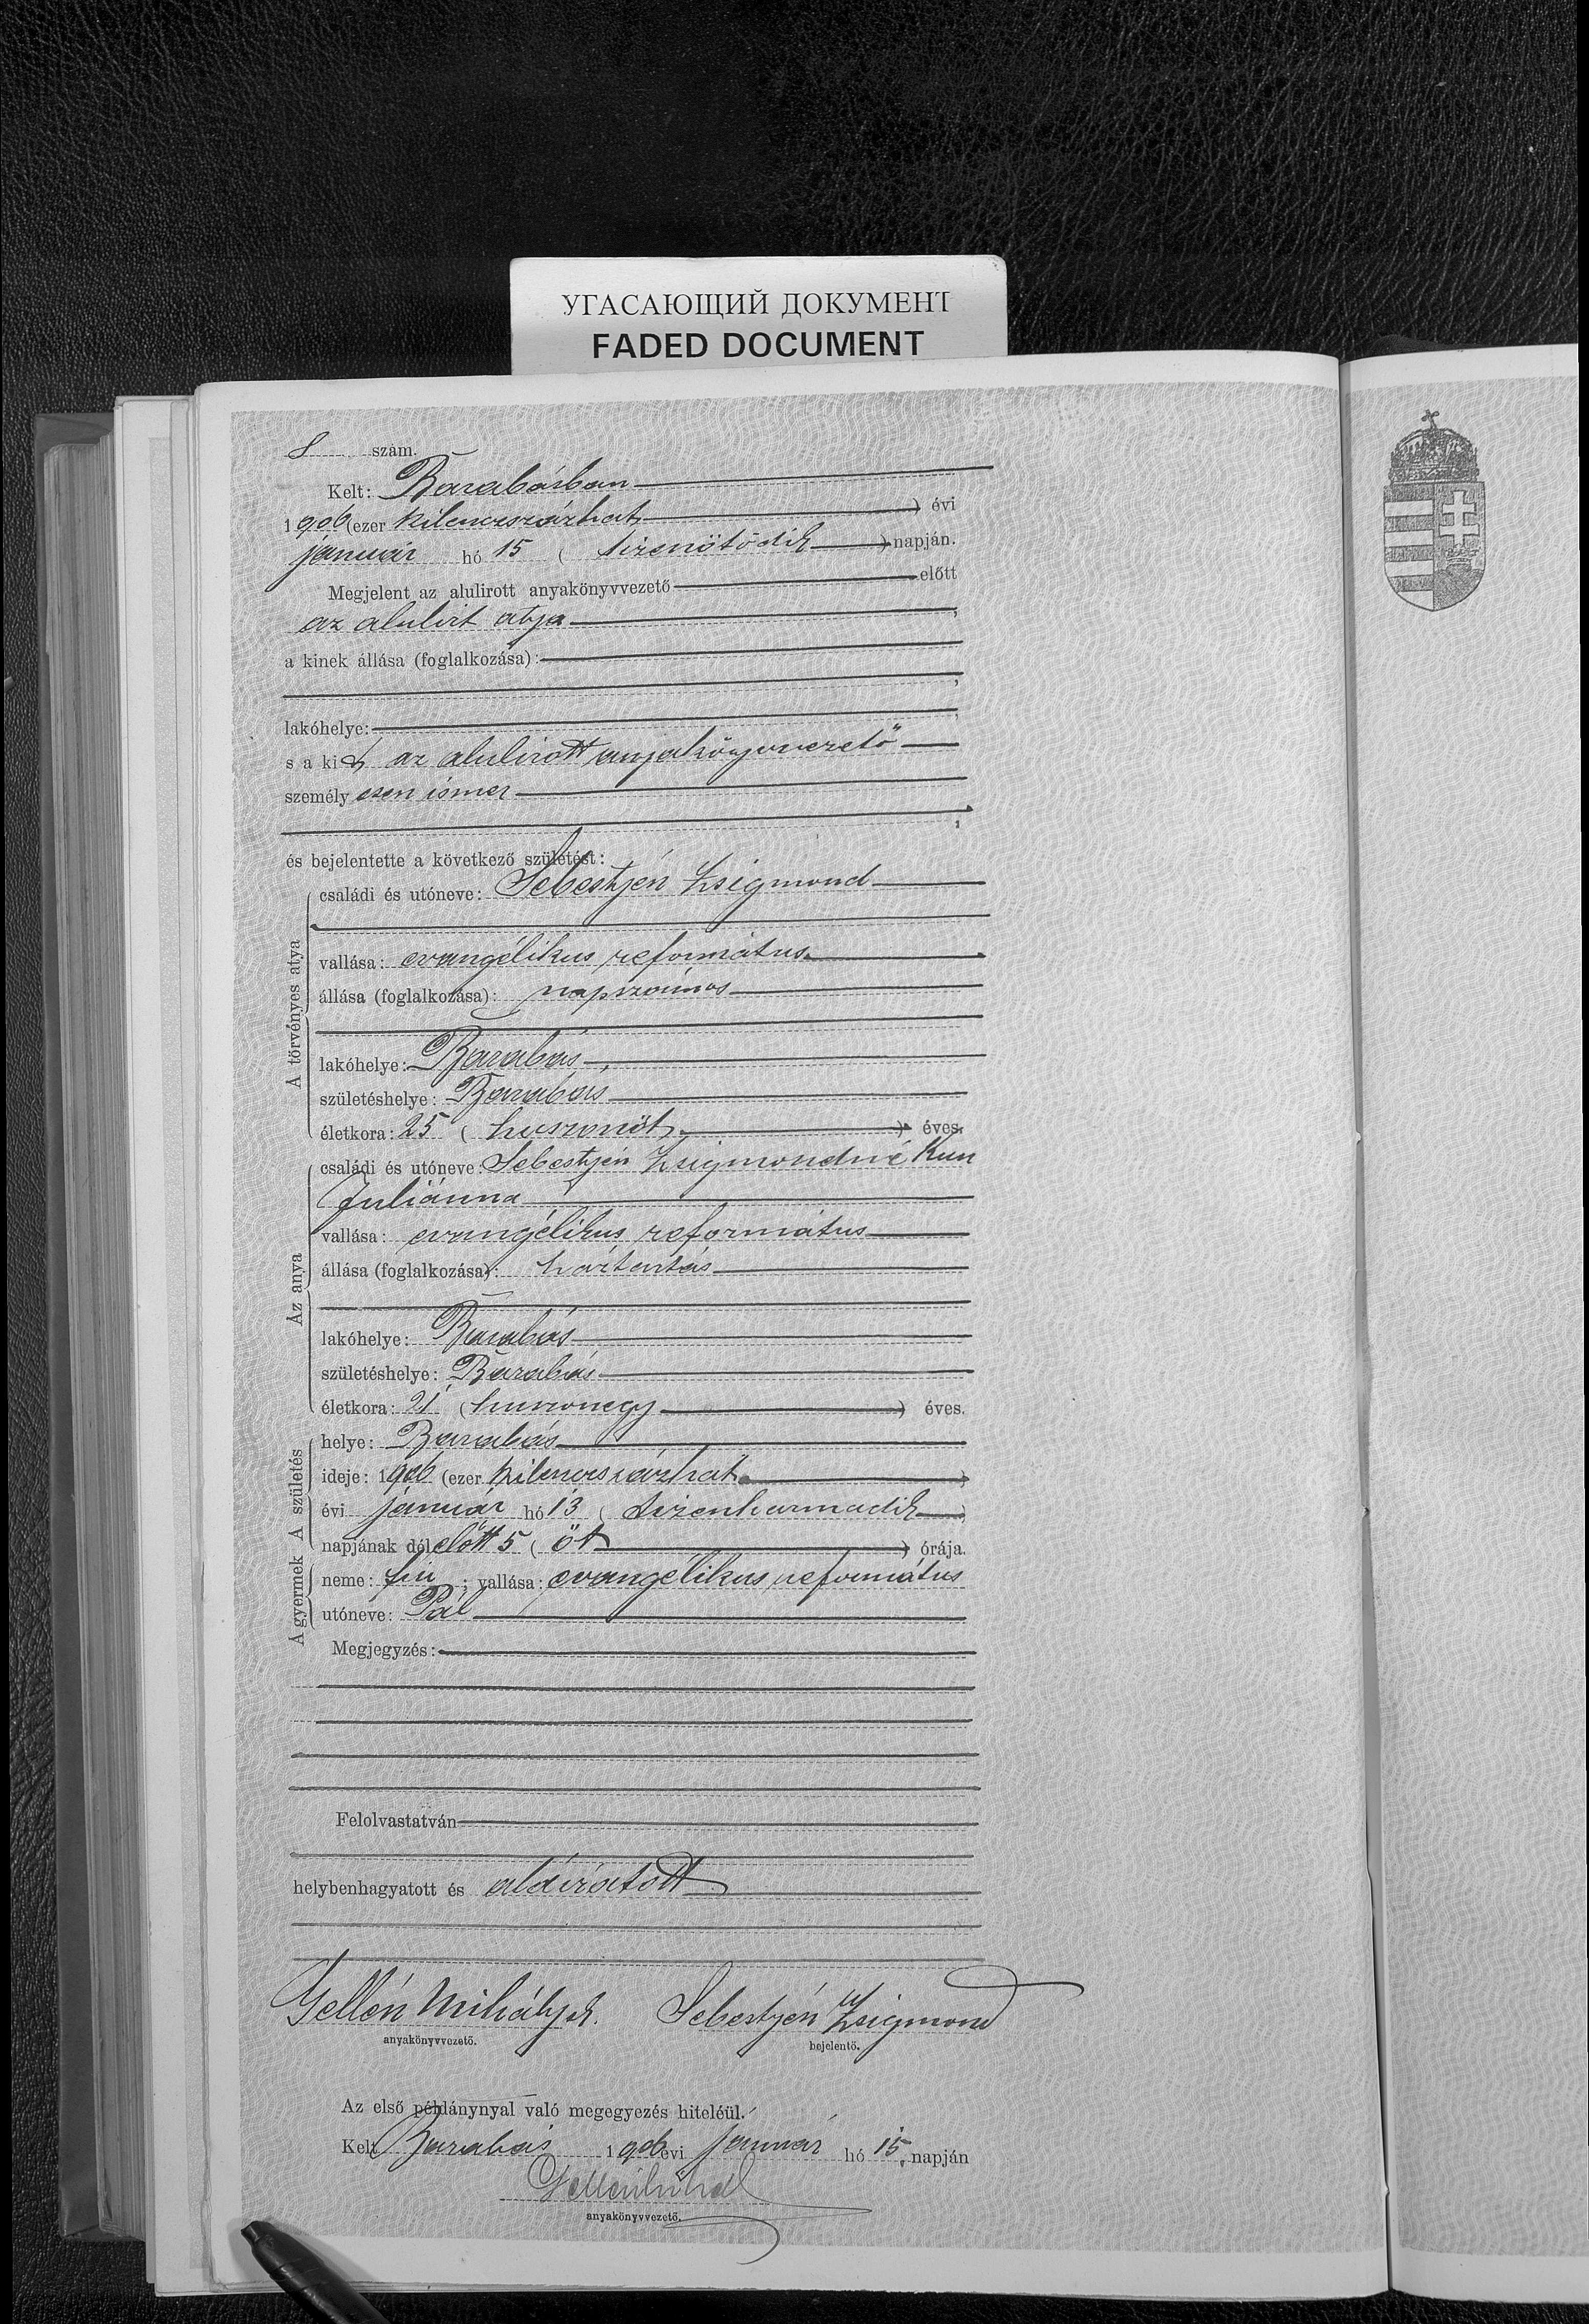 УГАСАЮЩИЙ ДОКУМЕНТ
FADED DOCUMENT
8 szám.
Kelt: Barabásban
1906 (ezer kilencszázhat) évi
január hó 15 (tizenötödik) napján.
Megjelent az alulirott anyakönyvvezető előtt
az alulirt atyja,
a kinek állása (foglalkozása):
;
lakóhelye:,
s a kit az alulirott anyakönyvvezető
személyesen ismer
,
és bejelentette a következő születést:
A törvényes atya
családi és utóneve: Sebestyén Zsigmond
vallása: evangélikus református
állása (foglalkozása): napszámos
lakóhelye: Barabás
születéshelye: Barabás
életkora: 25 (huszonöt) éves.
Az anya
családi és utóneve: Sebestyén Zsigmondné Kun
Juliánna
vallása: evangélikus református
állása (foglalkozása): háztartás
lakóhelye: Barabás
születéshelye: Barabás
életkora: 21 (huszonegy) éves.
A születés
helye: Barabás
ideje: 1906 (ezer kilencszázhat)
évi január hó 13 (tizenharmadik)
napjának délelőtt 5 (öt) órája.
A gyermek
neme: fiu; vallása: evangélikus református
utóneve: Pál
Megjegyzés:
Felolvastatván
helybenhagyatott és aláíratott
Gellén Mihály Sebestyén Zsigmond
anyakönyvvezető. bejelentő.
Az első példánynyal való megegyezés hiteléül.
Kelt Barabás 1906 évi január hó 15. napján
Gellén Mihál
anyakönyvvezető.